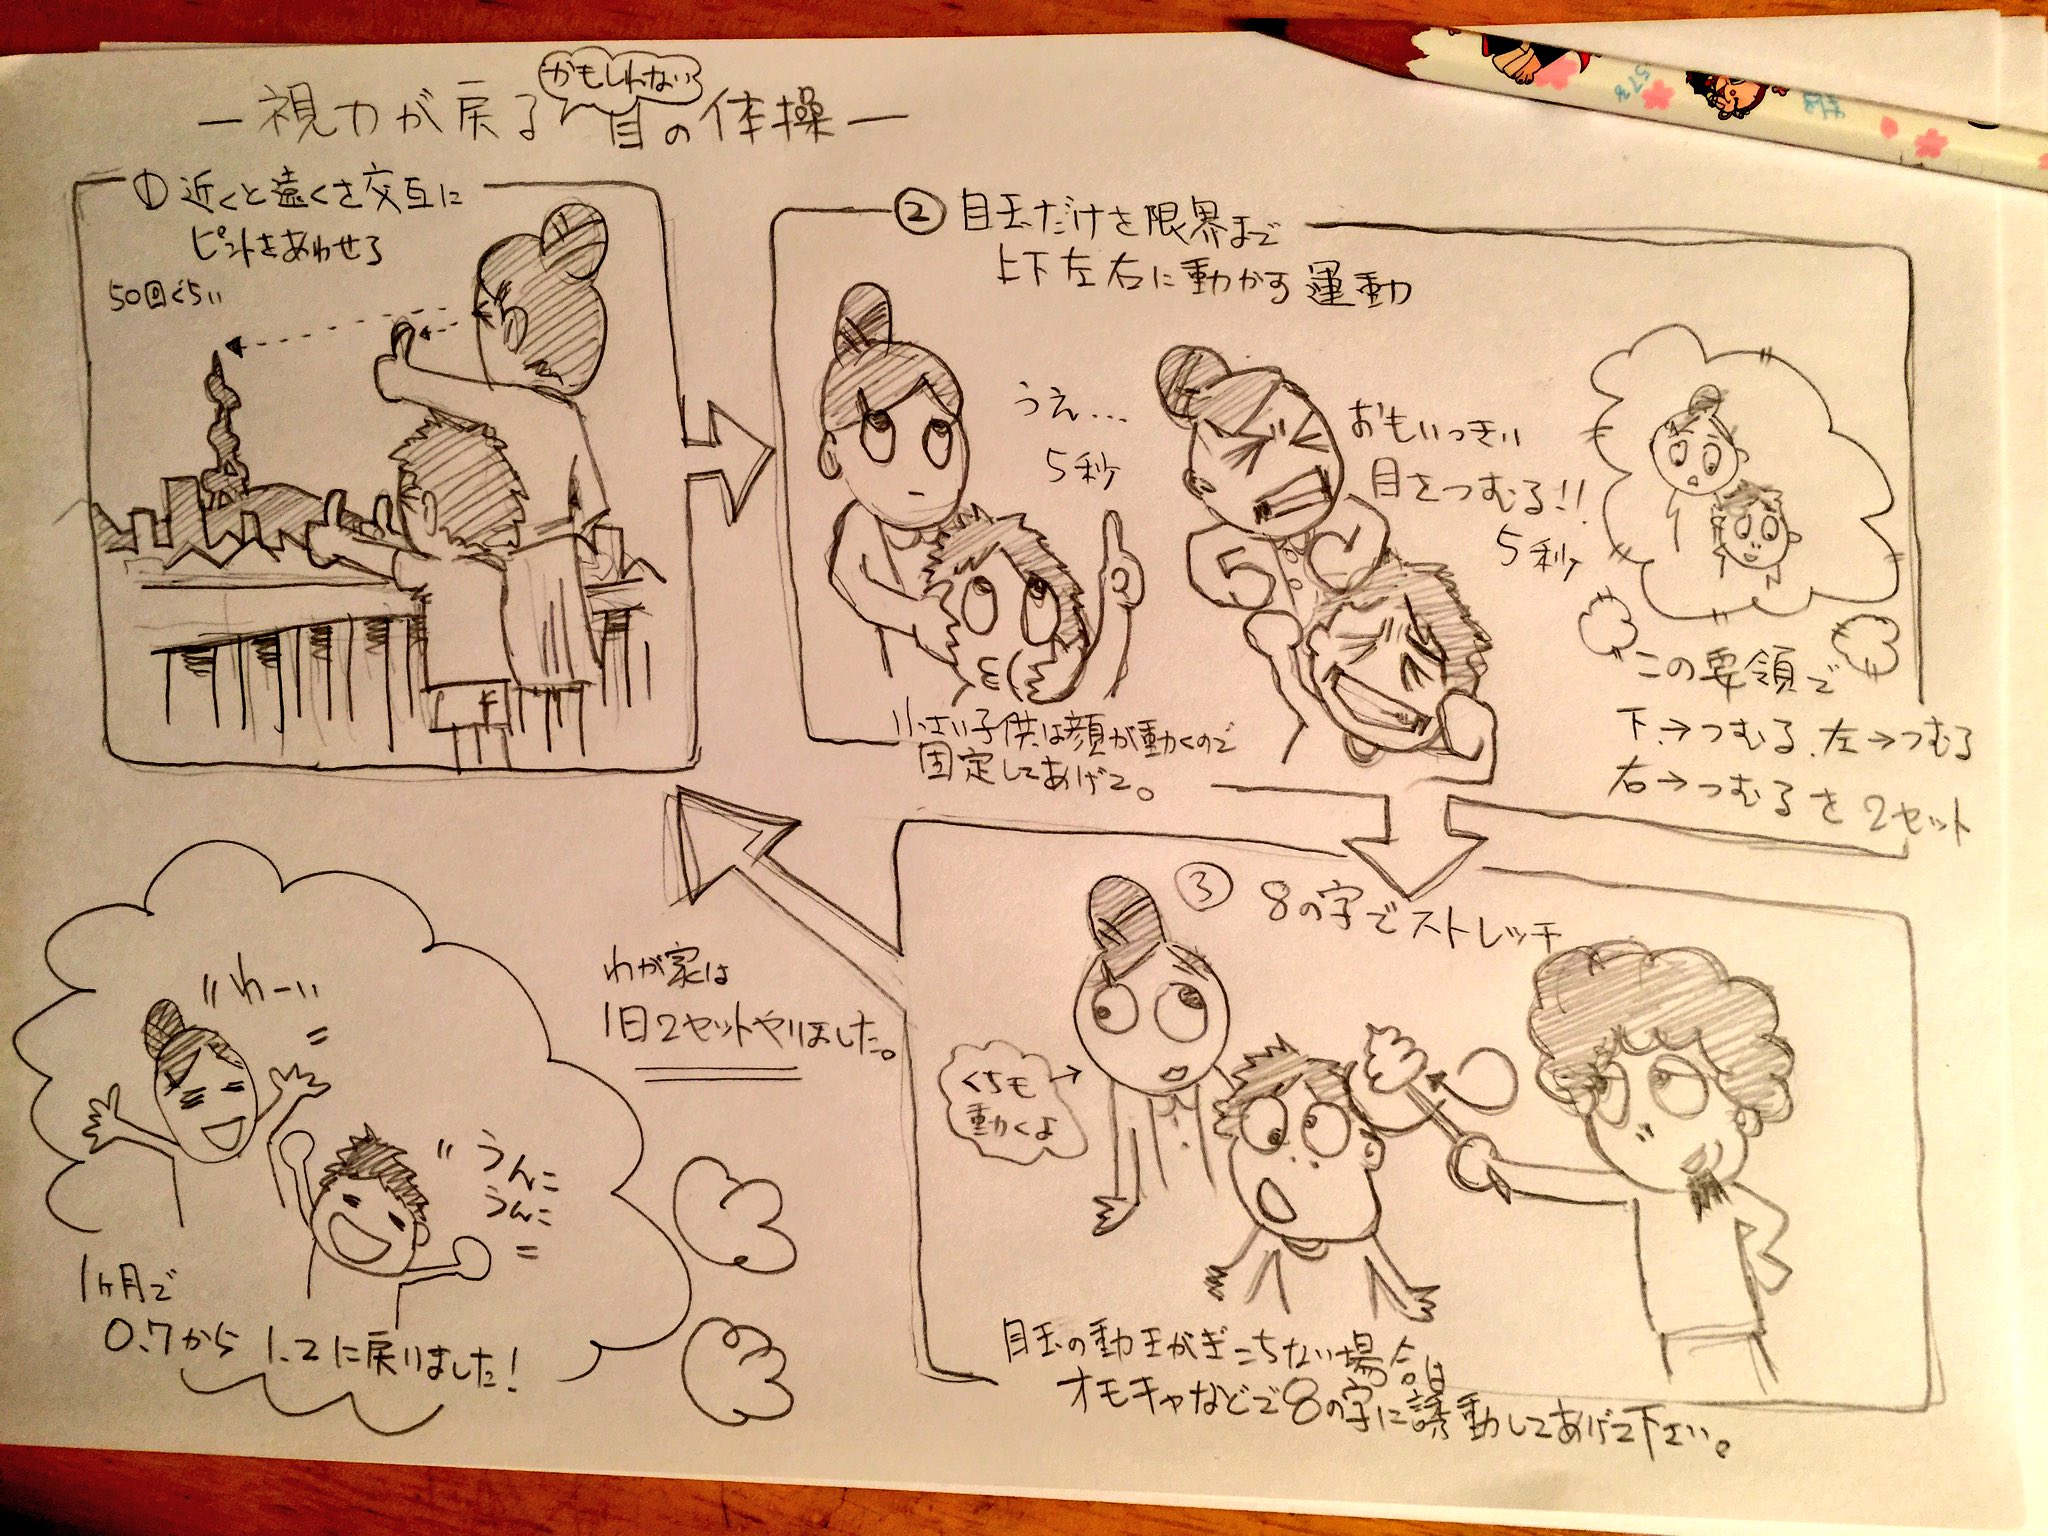 かもしれない
ー視力が戻る目の体操ー
① 近くと遠くを交互に
ピントをあわせる
50回ぐらい
② 目玉だけを限界まで
上下左右に動かす運動
うえ…
5秒
おもいっきり
目をつむる!!
5秒
小さい子供は顔が動くので
固定してあげて。
この要領で
下→つむる、左→つむる
右→つむるを2セット
③ 8の字でストレッチ
くちも
動くよ
目玉の動きがぎこちない場合は
オモチャなどで8の字に誘動してあげて下さい。
わが家は
1日2セットやりました。
わーい
うんこ
うんこ
1ヶ月で
0.7から1.2に戻りました!